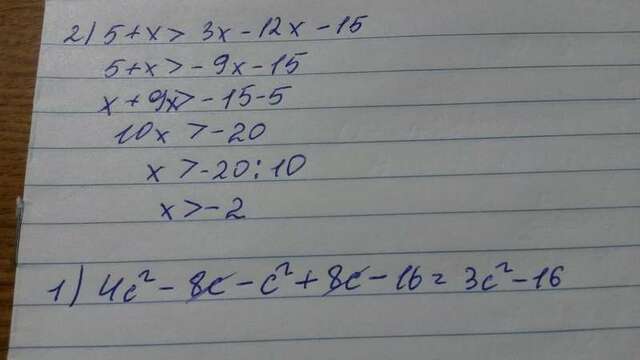 2) 5+x > 3x-12x-15
5+x > -9x-15
x+9x > -15-5
10x > -20
x > -20:10
x > -2
1) 4c²-8c-c²+8c-16 = 3c²-16